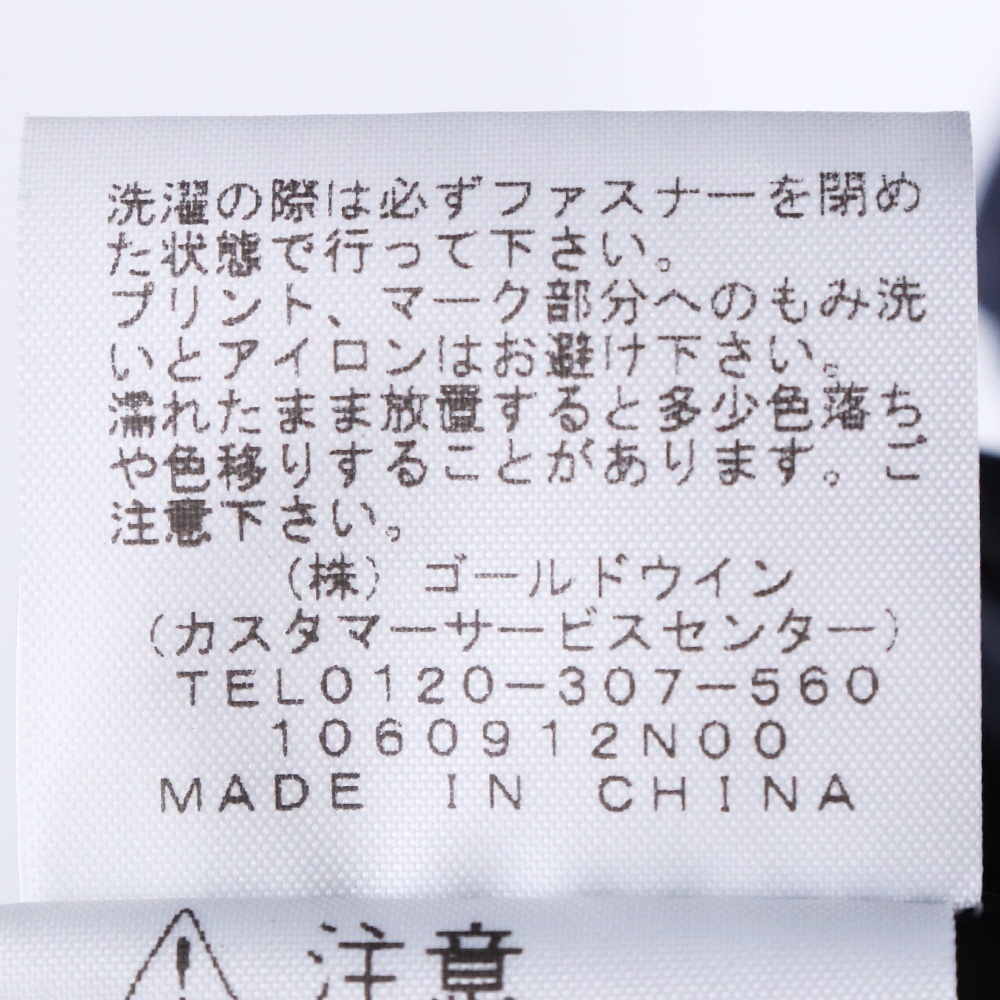 洗濯の際は必ずファスナーを閉め
た状態で行って下さい。
プリント、マーク部分へのもみ洗
いとアイロンはお避け下さい。
濡れたまま放置すると多少色落ち
や色移りすることがあります。ご
注意下さい。
(株) ゴールドウイン
(カスタマーサービスセンター)
TEL0120-307-560
1060912N00
MADE IN CHINA
注意